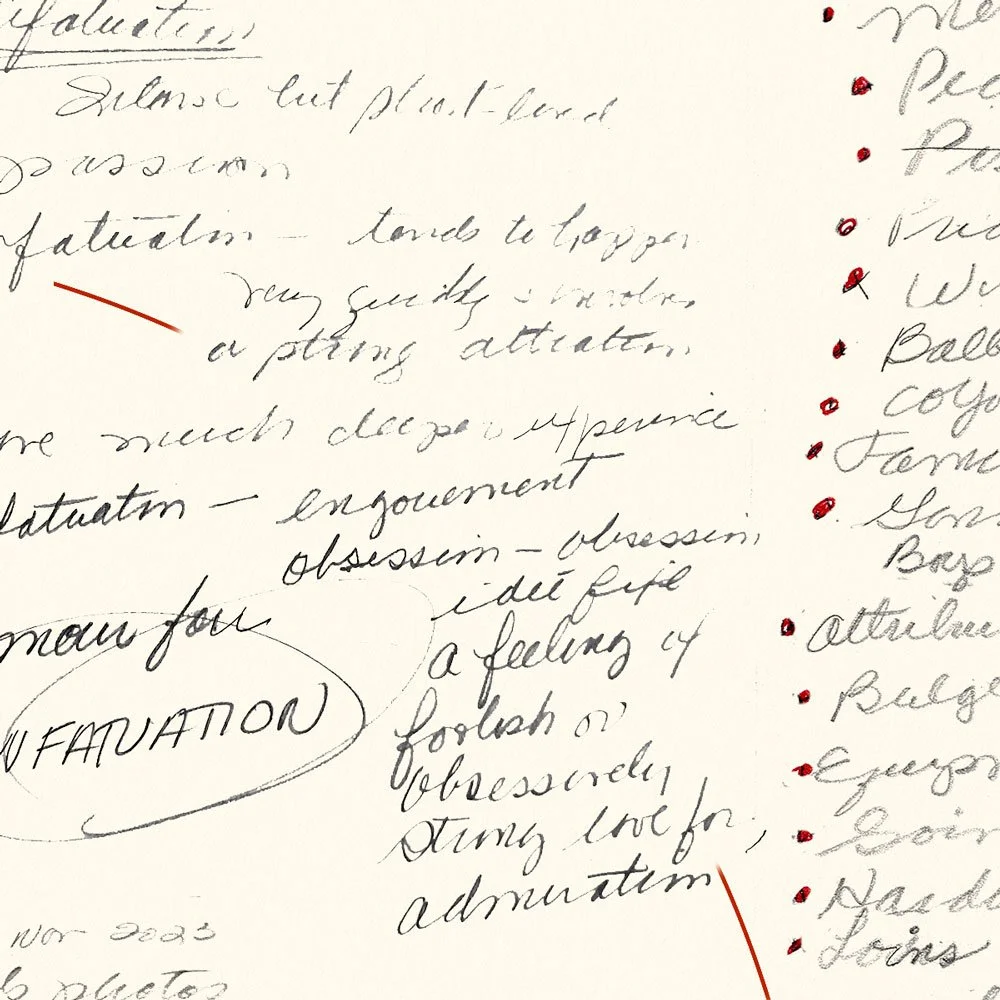 nfatuation
Intense but short-lived
passion
nfatuation — tends to happen
very quickly & involves
a strong attraction
ve much deeper experience
fatuation — engouement
obsession — obsession
idée fixe
mour fou
a feeling of
INFATUATION
foolish or
obsessively
strong love for,
admiration
Nov 2023
photos
Me
Pec
Pri
Wi
Ball
coyo
Fam
Boys
attribu
Bulge
Equip
Goin
Hard
Loins